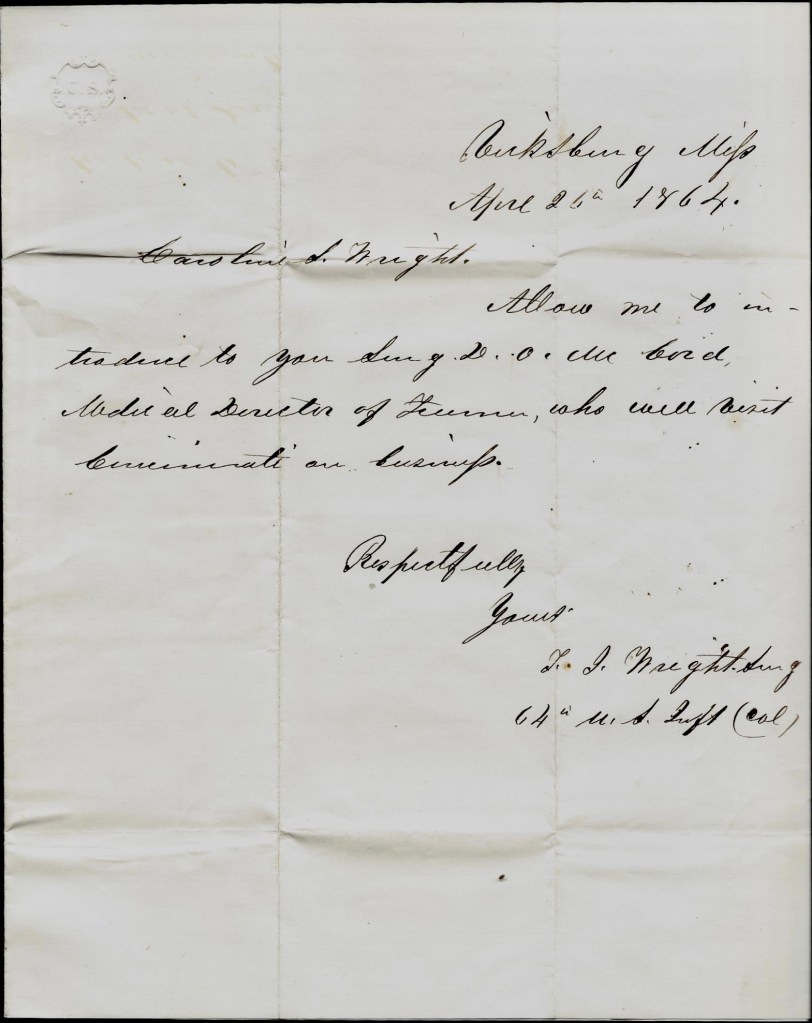 Vicksburg Miss
Apre 26th 1864.
Caroline S. Wright.
Allow me to in-
troduce to you Surg. D. O. Mc Cord,
Medical Director of Freedmen, who will visit
Cincinnati on business.
Respectfully
Yours
T. J. Wright. Surg
64th U. S. Inft (Col)